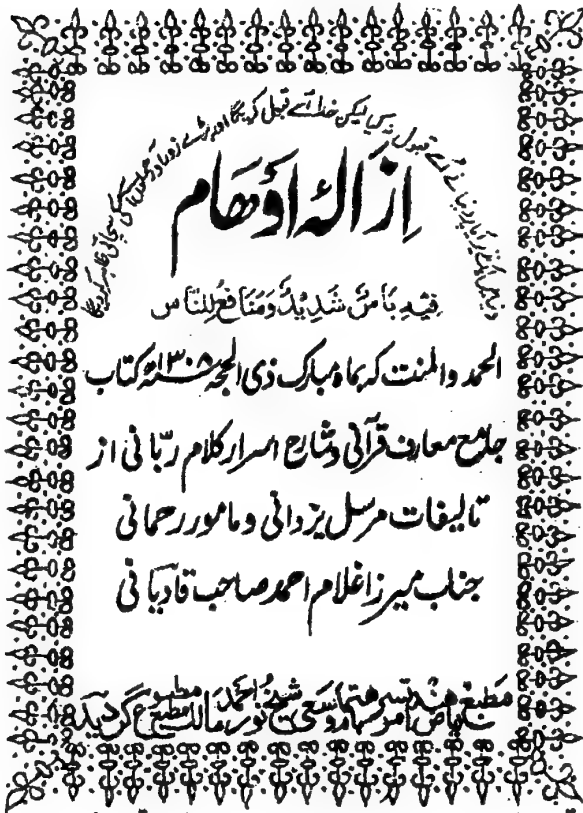 دنیا میں ایک نذیر آیا پر دنیا نے اُسے قبول نہ کیا لیکن خدا اُسے قبول کریگا اور بڑے زور آور حملوں سے اسکی سچائی ظاہر کر دیگا
اِزَالۂ اَوْھَام
فِیْہِ بَاْسٌ شَدِیْدٌ وَّمَنَافِعُ لِلنَّاسِ
الحمد والمنت کہ بماہ مبارک ذی الحجہ ۱۳۰۸ھ کتاب
جامع معارف قرآنی و شارح اسرار کلام ربّانی از
تالیفات مرسل یزدانی و مامور رحمانی
جناب میرزا غلام احمد صاحب قادیانی
مطبع ریاض ہند امرتسر باہتمام و سعی شیخ نور احمد مالک مطبع مطبوع گردید